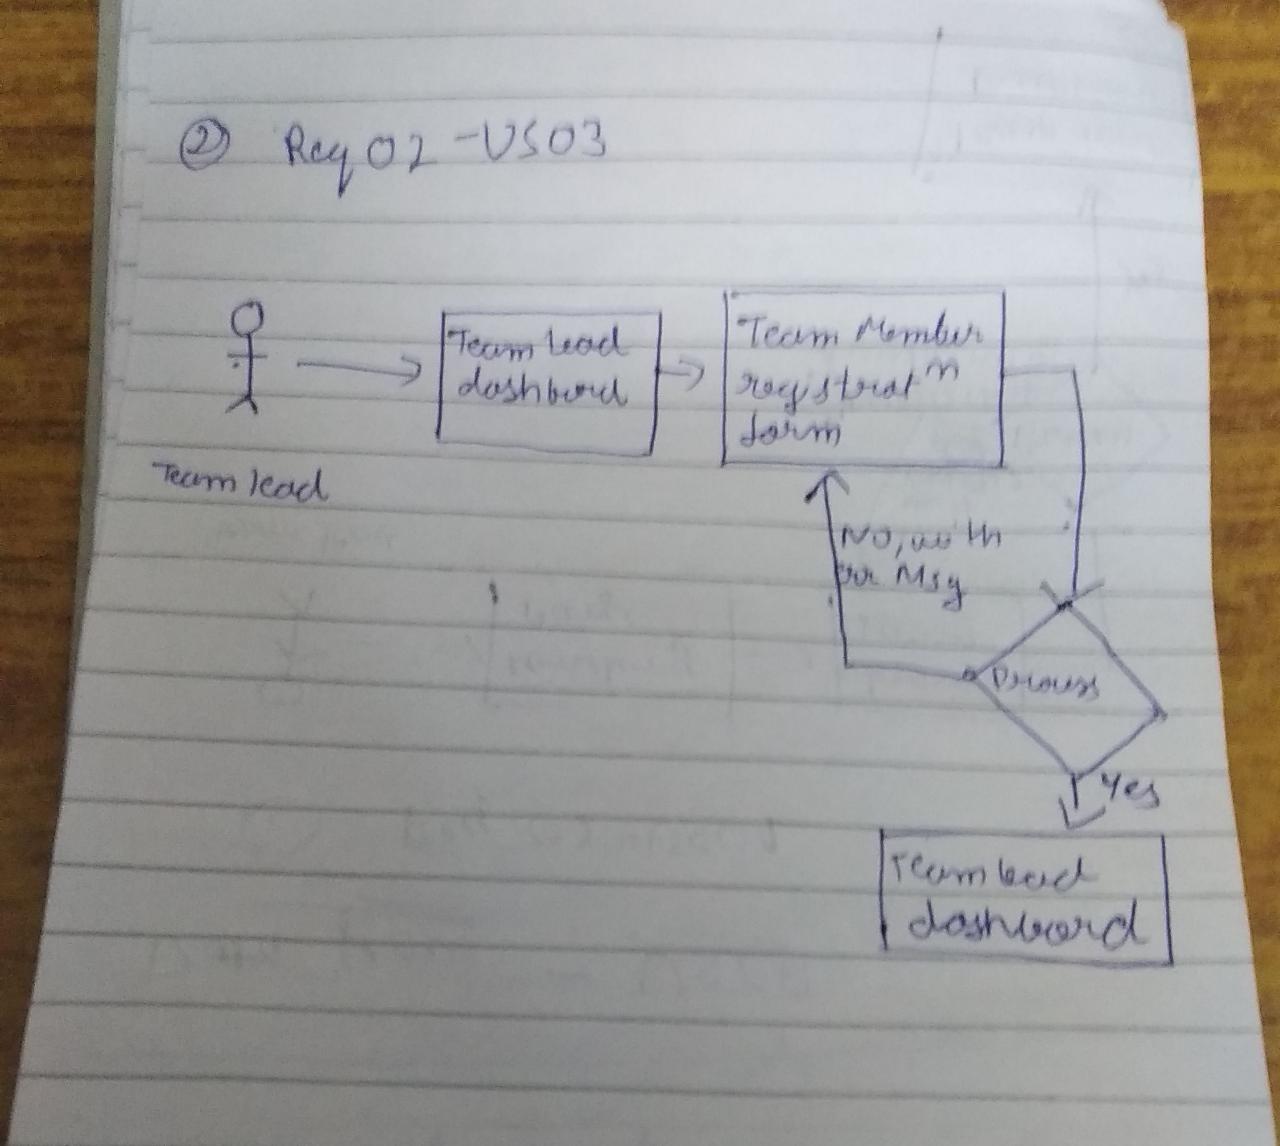 ② Req 02 - US03
Team lead
dashbord
Team Member
registratⁿ
form
Team lead
No, with
err Msg
Process
Yes
Team lead
dashbord